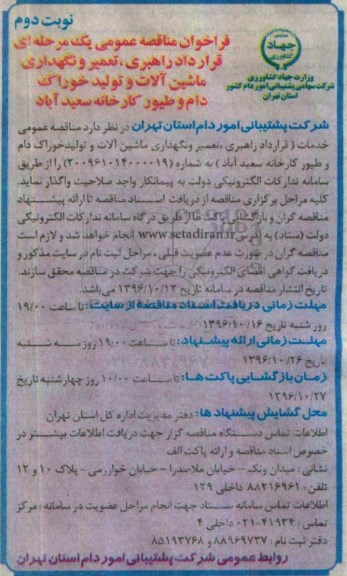 نوبت دوم
فراخوان مناقصه عمومی یک مرحله ای
قرارداد راهبری، تعمیر و نگهداری
ماشین آلات و تولید خوراک
دام و طیور کارخانه سعید آباد
جهاد
وزارت جهاد کشاورزی
شرکت سهامی پشتیبانی امور دام کشور
استان تهران
شرکت پشتیبانی امور دام استان تهران در نظر دارد مناقصه عمومی
خدمات ( قرارداد راهبری ،تعمیر ونگهداری ماشین آلات و تولیدخوراک دام
و طیور کارخانه سعید آباد ) به شماره (۲۰۰۹۶۱۰۱۴۰۰۰۰۱۹) را از طریق
سامانه تدارکات الکترونیکی دولت به پیمانکار واجد صلاحیت واگذار نماید.
کلیه مراحل برگزاری مناقصه از دریافت اسناد مناقصه تا ارائه پیشنهاد
مناقصه گران و بازگشایی پاکت ها از طریق درگاه سامانه تدارکات الکترونیکی
دولت (ستاد) به آدرس www.setadiran.ir انجام خواهد شد و لازم است
مناقصه گران در صورت عدم عضویت قبلی، مراحل ثبت نام در سایت مذکور و
دریافت گواهی امضای الکترونیکی را جهت شرکت در مناقصه محقق سازند.
تاریخ انتشار مناقصه در سامانه تاریخ ۱۳۹۶/۱۰/۱۲ می باشد.
مهلت زمانی دریافت اسناد مناقصه از سایت: تا ساعت ۱۹/۰۰
روز شنبه تاریخ ۱۳۹۶/۱۰/۱۶
مهلت زمانی ارائه پیشنهاد: تا ساعت ۱۹/۰۰ روز سه شنبه
تاریخ ۱۳۹۶/۱۰/۲۶
زمان بازگشایی پاکت ها: تا ساعت ۱۰/۰۰ روز چهارشنبه تاریخ
۱۳۹۶/۱۰/۲۷
محل گشایش پیشنهاد ها: دفتر مدیریت اداره کل استان تهران
اطلاعات تماس دستگاه مناقصه گزار جهت دریافت اطلاعات بیشتر در
خصوص اسناد مناقصه و ارائه پاکت الف
نشانی: میدان ونک – خیابان ملاصدرا – خیابان خوارزمی - پلاک ۱۰ و ۱۲
تلفن: ۸۸۲۱۶۹۶۱ داخلی ۱۲۹
اطلاعات تماس سامانه ستاد جهت انجام مراحل عضویت در سامانه : مرکز
تماس : ۴۱۹۳۴-۰۲۱ داخلی ۴
دفتر ثبت نام : ۸۸۹۶۹۷۳۷ و ۸۵۱۹۳۷۶۸
روابط عمومی شرکت پشتیبانی امور دام استان تهران